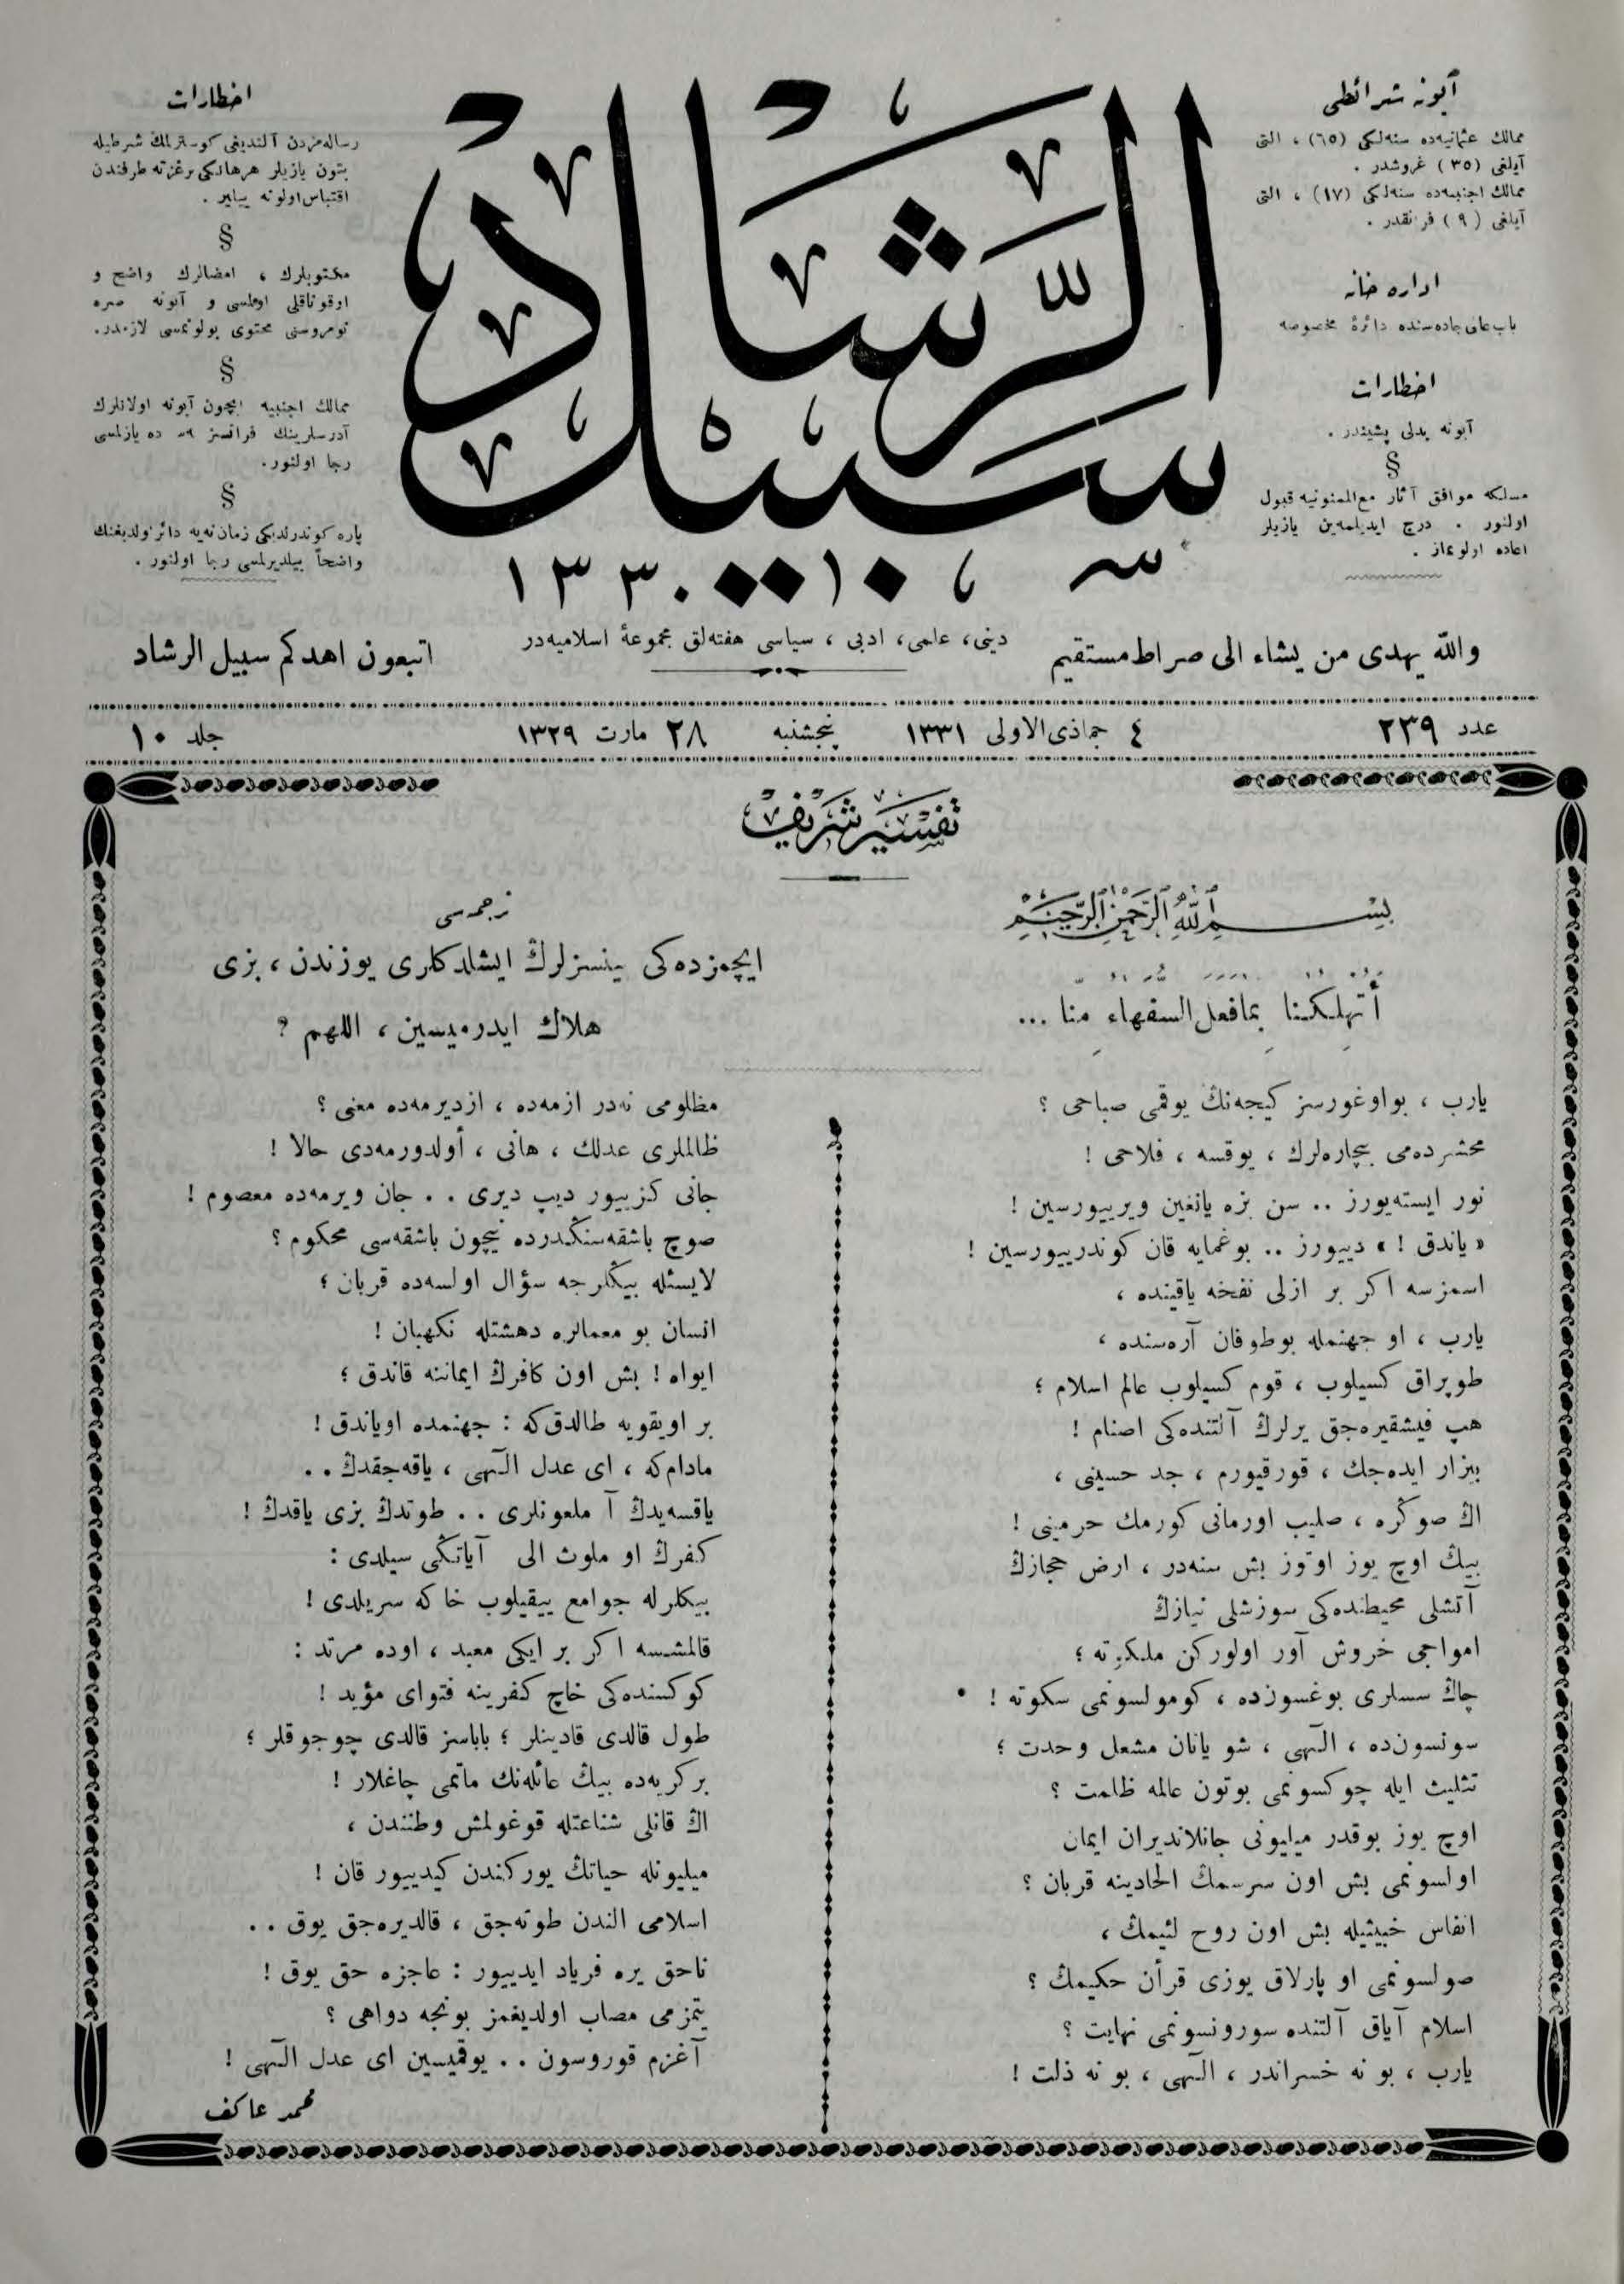 آبونه شرائطی
ممالك عثمانیه‌ده سنه‌لكی (٦٥) ، التی
آیلغی (٣٥) غروشدر .
ممالك اجنبیه‌ده سنه‌لكی (١٧) ، التی
آیلغی (٩) فرانقدر .
اداره خانه
باب عالی جاده‌سنده دائرۀ مخصوصه
اخطارات
آبونه بدلی پشیندر .
§
مسلكه موافق آثار مع‌الممنونیه قبول
اولنور . درج ایدیلمه‌ین یازیلر
اعاده اولونماز .
سبیل الرشاد
١٣٣٠
اخطارات
رساله‌مزدن آلندیغی كوسترلمك شرطیله
بتون یازیلر هرهانكی برغزته طرفندن
اقتباس اولونه بیلیر .
§
مكتوبلرك ، امضالرك واضح و
اوقوناقلی اولمسی و آبونه صره
نومروسنی محتوی بولونمسی لازمدر.
§
ممالك اجنبیه ایچون آبونه اولانلرك
آدرسلرینك فرانسزجه ده یازلمسی
رجا اولنور.
§
پاره كوندرلدیكی زمان نه‌یه دائر اولدیغنك
واضحاً بیلدیرلمسی رجا اولنور .
والله یهدی من یشاء الی صراط مستقیم
دینی، علمی، ادبی ، سیاسی هفته‌لق مجموعۀ اسلامیه‌در
اتبعون اهدكم سبیل الرشاد
عدد ٢٣٩
٤ جمادی‌الاولی ١٣٣١
پنجشنبه
٢٨ مارت ١٣٢٩
جلد ١٠
تفسیر شریف
بسم الله الرحمن الرحیم
أتهلكنا بما فعل السفهاء منا ...
ترجمه‌سی
ایچمزده‌كی بینسزلرڭ ایشلدكلری یوزندن ، بزی
هلاك ایدرمیسین ، اللهم ؟
یارب ، بو اوغورسز كیجه‌نڭ یوقمی صباحی ؟
محشرده‌می بیچاره‌لرك ، یوقسه ، فلاحی !
نور ایسته‌یورز .. سن بزه یانغین ویرییورسین !
« یاندق ! » دییورز .. بوغمایه قان كوندرییورسین !
اسمزسه اكر بر ازلی نفخه یاقینده ،
یارب ، او جهنمله بو طوفان آره‌سنده ،
طوپراق كسیلوب ، قوم كسیلوب عالم اسلام ؛
هپ فیشقیره‌جق یرلرڭ آلتنده‌كی اصنام !
بیزار ایده‌جك ، قورقیورم ، جد حسینی ،
اڭ صوڭره ، صلیب اورمانی كورمك حرمینی !
بیڭ اوچ یوز اوتوز بش سنه‌در ، ارض حجازڭ
آتشلی محیطنده‌كی سوزشلی نیازڭ
امواجی خروش آور اولوركن ملكوته ؛
چاڭ سسلری بوغسون‌ده ، كومولسونمی سكوته !
سونسون‌ده ، الٓهی ، شو یانان مشعل وحدت ؛
تثلیث ایله چوكسونمی بوتون عالمه ظلمت ؟
اوچ یوز بوقدر میلیونی جانلاندیران ایمان
اولسونمی بش اون سرسمڭ الحادینه قربان ؟
انفاس خبیثیله بش اون روح لئیمڭ ،
صولسونمی او پارلاق یوزی قرأن حكیمڭ ؟
اسلام آیاق آلتنده سورونسونمی نهایت ؟
یارب ، بو نه خسراندر ، الٓهی ، بو نه ذلت !
مظلومی نه‌در ازمه‌ده ، ازدیرمه‌ده معنی ؟
ظالملری عدلك ، هانی ، أولدورمه‌دی حالا !
جانی كزییور دیپ دیری .. جان ویرمه‌ده معصوم !
صوچ باشقه‌سنڭدرده نیچون باشقه‌سی محكوم ؟
لایسئله بیڭلرجه سؤال اولسه‌ده قربان ؛
انسان بو معمالره دهشتله نكهبان !
ایواه ! بش اون كافرڭ ایماننه قاندق ؛
بر اویقویه طالدق‌كه : جهنمده اویاندق !
مادام‌كه ، ای عدل الٓهی ، یاقه‌جقدڭ ..
یاقسه‌یدڭ آ ملعونلری .. طوتدڭ بزی یاقدڭ !
كفرڭ او ملوث الی آیاتڭی سیلدی :
بیڭلرله جوامع ییقیلوب خاكه سریلدی !
قالمشسه اكر بر ایكی معبد ، اوده مرتد :
كوكسنده‌كی خاچ كفرینه فتوای مؤید !
طول قالدی قادینلر ؛ باباسز قالدی چوجوقلر ؛
بر كریه‌ده بیڭ عائله‌نڭ ماتمی چاغلار !
اڭ قانلی شناعتله قوغولمش وطنندن ،
میلیونله حیاتڭ یوركندن كیدییور قان !
اسلامی الندن طوته‌جق ، قالدیره‌جق یوق ..
ناحق یره فریاد ایدییور : عاجزه حق یوق !
یتمزمی مصاب اولدیغمز بونجه دواهی ؟
آغزم قوروسون .. یوقمیسین ای عدل الٓهی !
محمد عاكف